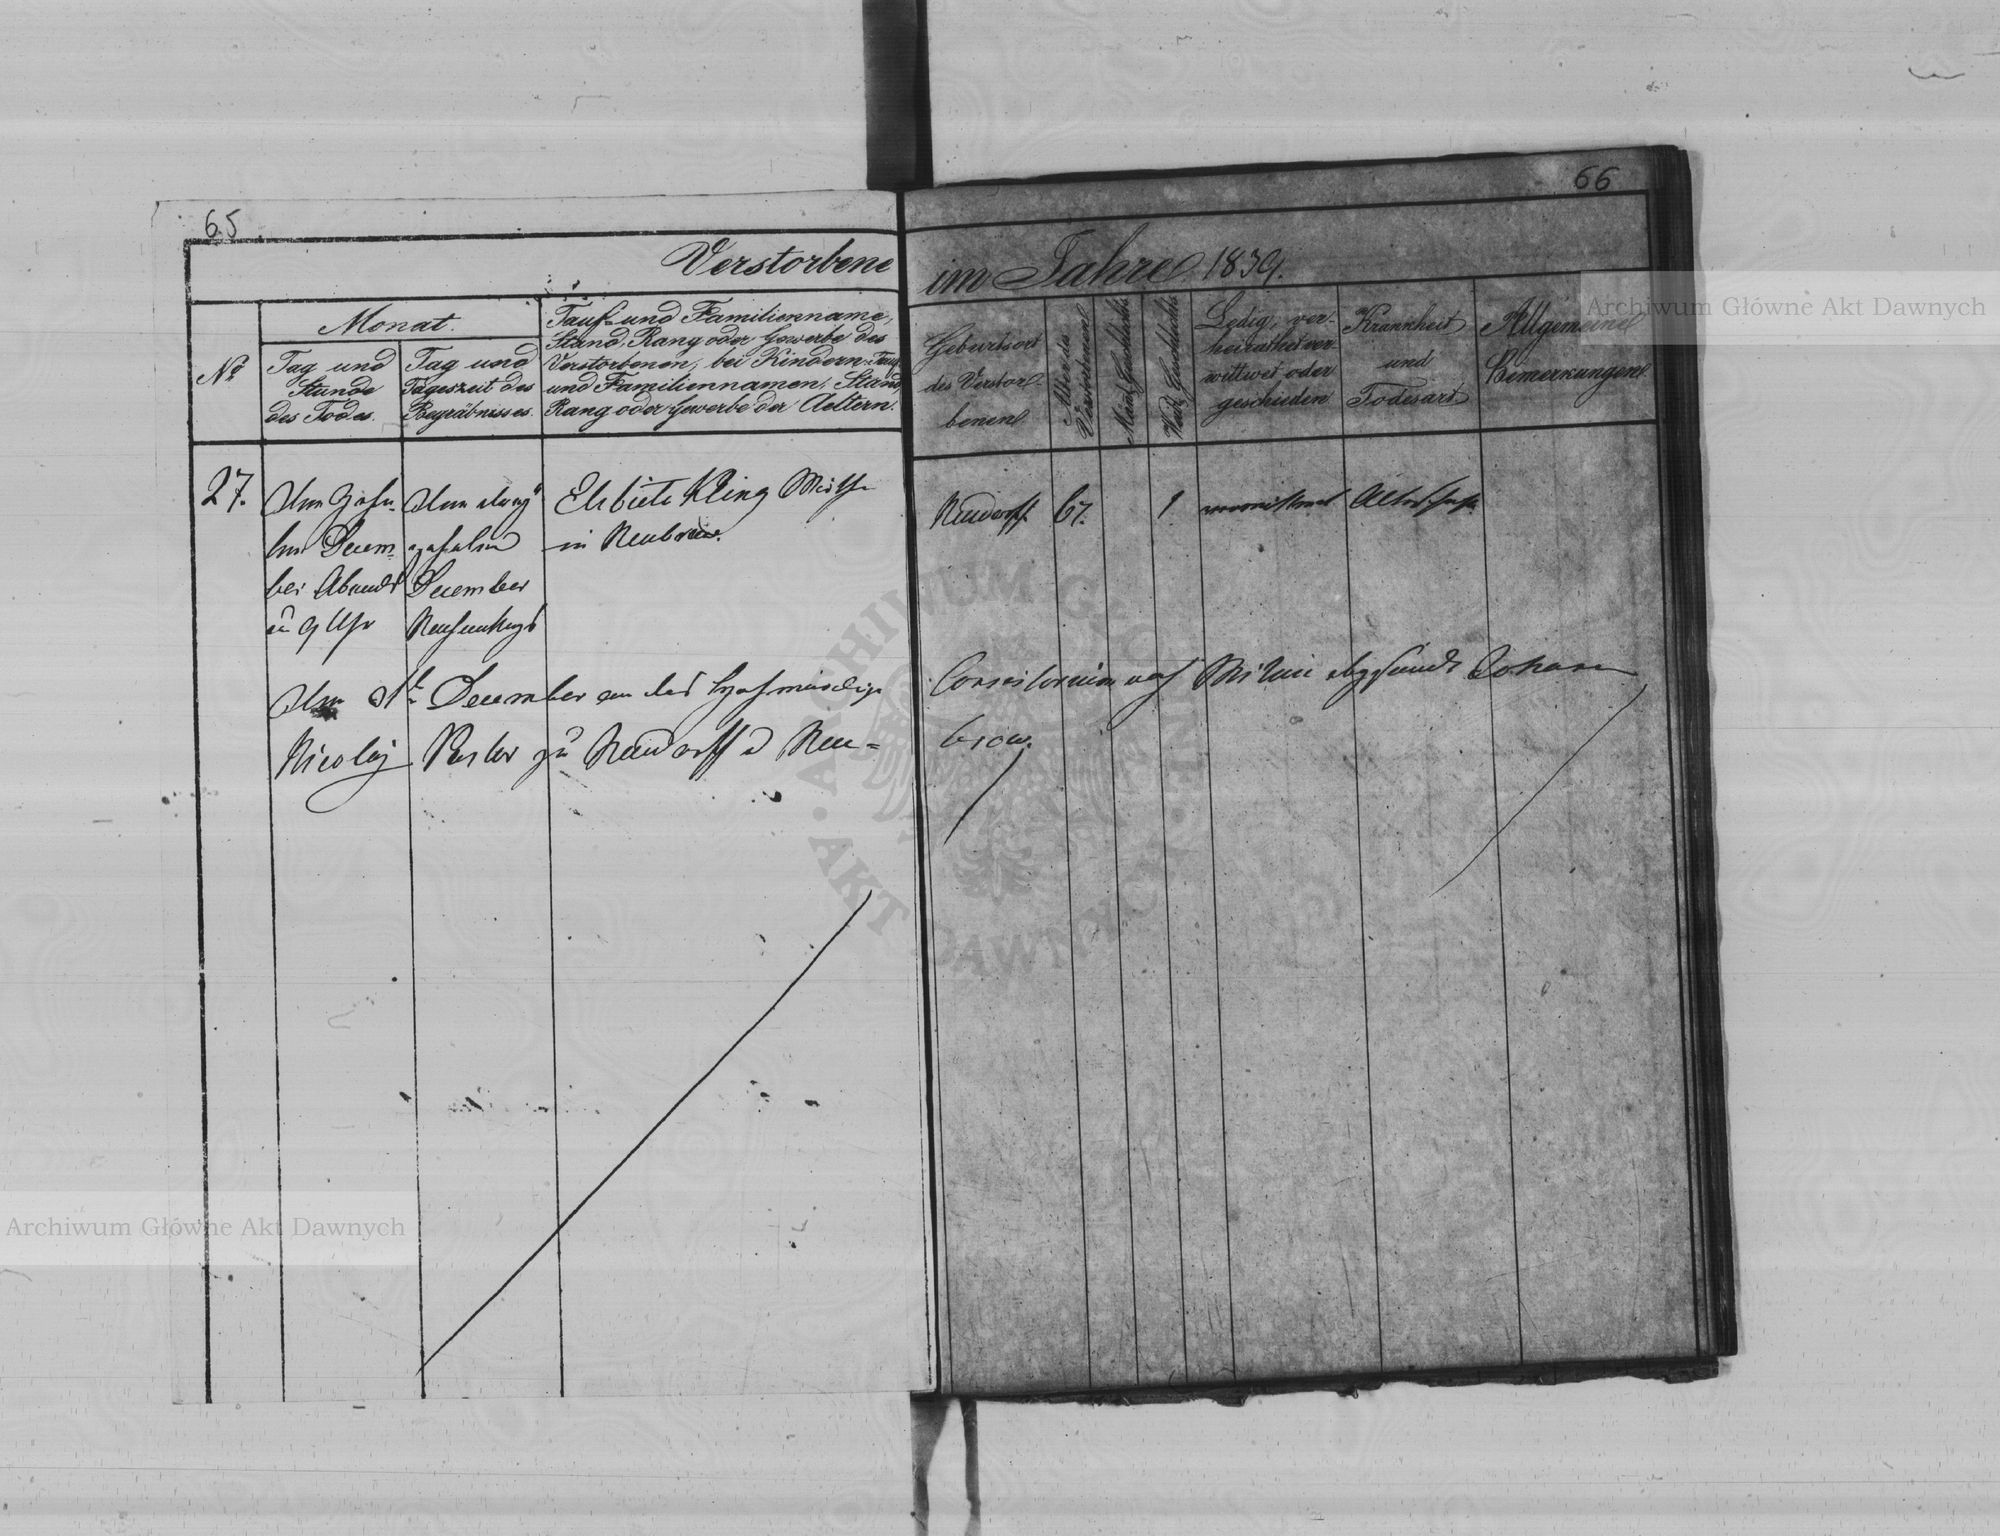 65
66
Verstorbene im Jahre 1839.
No
Monat.
Tag und
Stunde
des Todes.
Tag und
Tageszeit des
Begräbnisses.
Tauf- und Familienname,
Stand, Rang oder Gewerbe des
Verstorbenen, bei Kindern Tauf
und Familiennamen, Stand,
Rang oder Gewerbe der Aeltern.
Geburtsort
des Verstor-
benen
Alter des
Verstorbenen
Mänl. Geschlechts
Weibl. Geschlechts
Ledig, ver-
heirathet ver-
wittwet oder
geschieden
Krankheit
und
Todesart
Allgemeine
Bemerkungen
27.
Am
December
bei Abends
9 Uhr
Am
December
Elsbieta Kling
in Neubrow.
Neudorff. 67. 1.
Am December an das
Consistorium nach abgesandt Johann
Nicolaj Pastor zu Neudorff u Neu-
brow.
Archiwum Główne Akt Dawnych
Archiwum Główne Akt Dawnych
ARCHIWUM GŁÓWNE AKT DAWNYCH